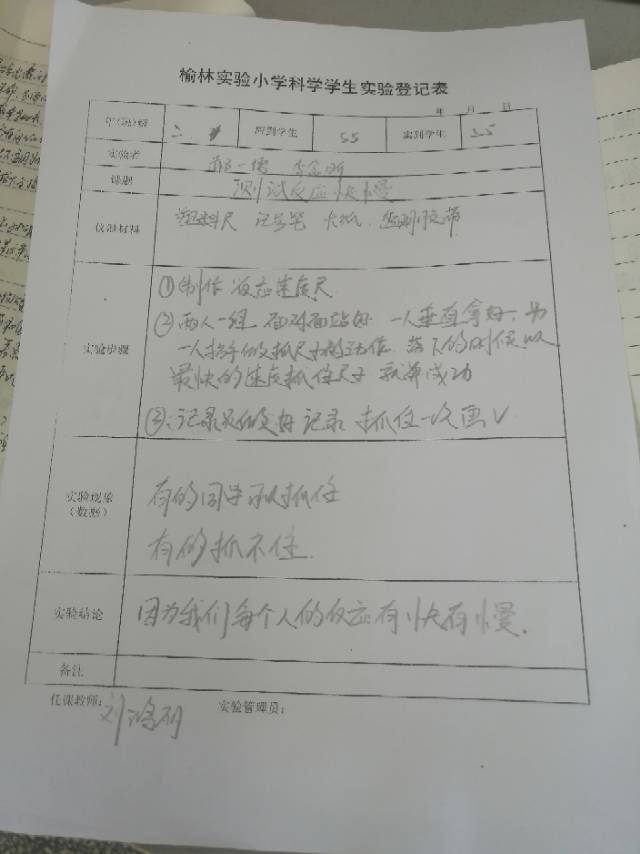 榆林实验小学科学学生实验登记表
年 月 日
年(班)级 二. 应到学生 55 实到学生 55
实验者
课题 测试反应快慢
仪器材料 塑料尺 记号笔 卡纸. 透明胶带
①制作反应速度尺
②两人一组 面对面站好 一人垂直拿好. 另
实验步骤 一人指手做抓尺子的动作. 落下的时候以
最快的速度抓住尺子 就算成功
③:记录员做好记录 抓住一次画√
实验现象 有的同学可以抓住
(数据) 有的抓不住.
实验结论 因为我们每个人的反应有快有慢.
备注
任课教师: 实验管理员: